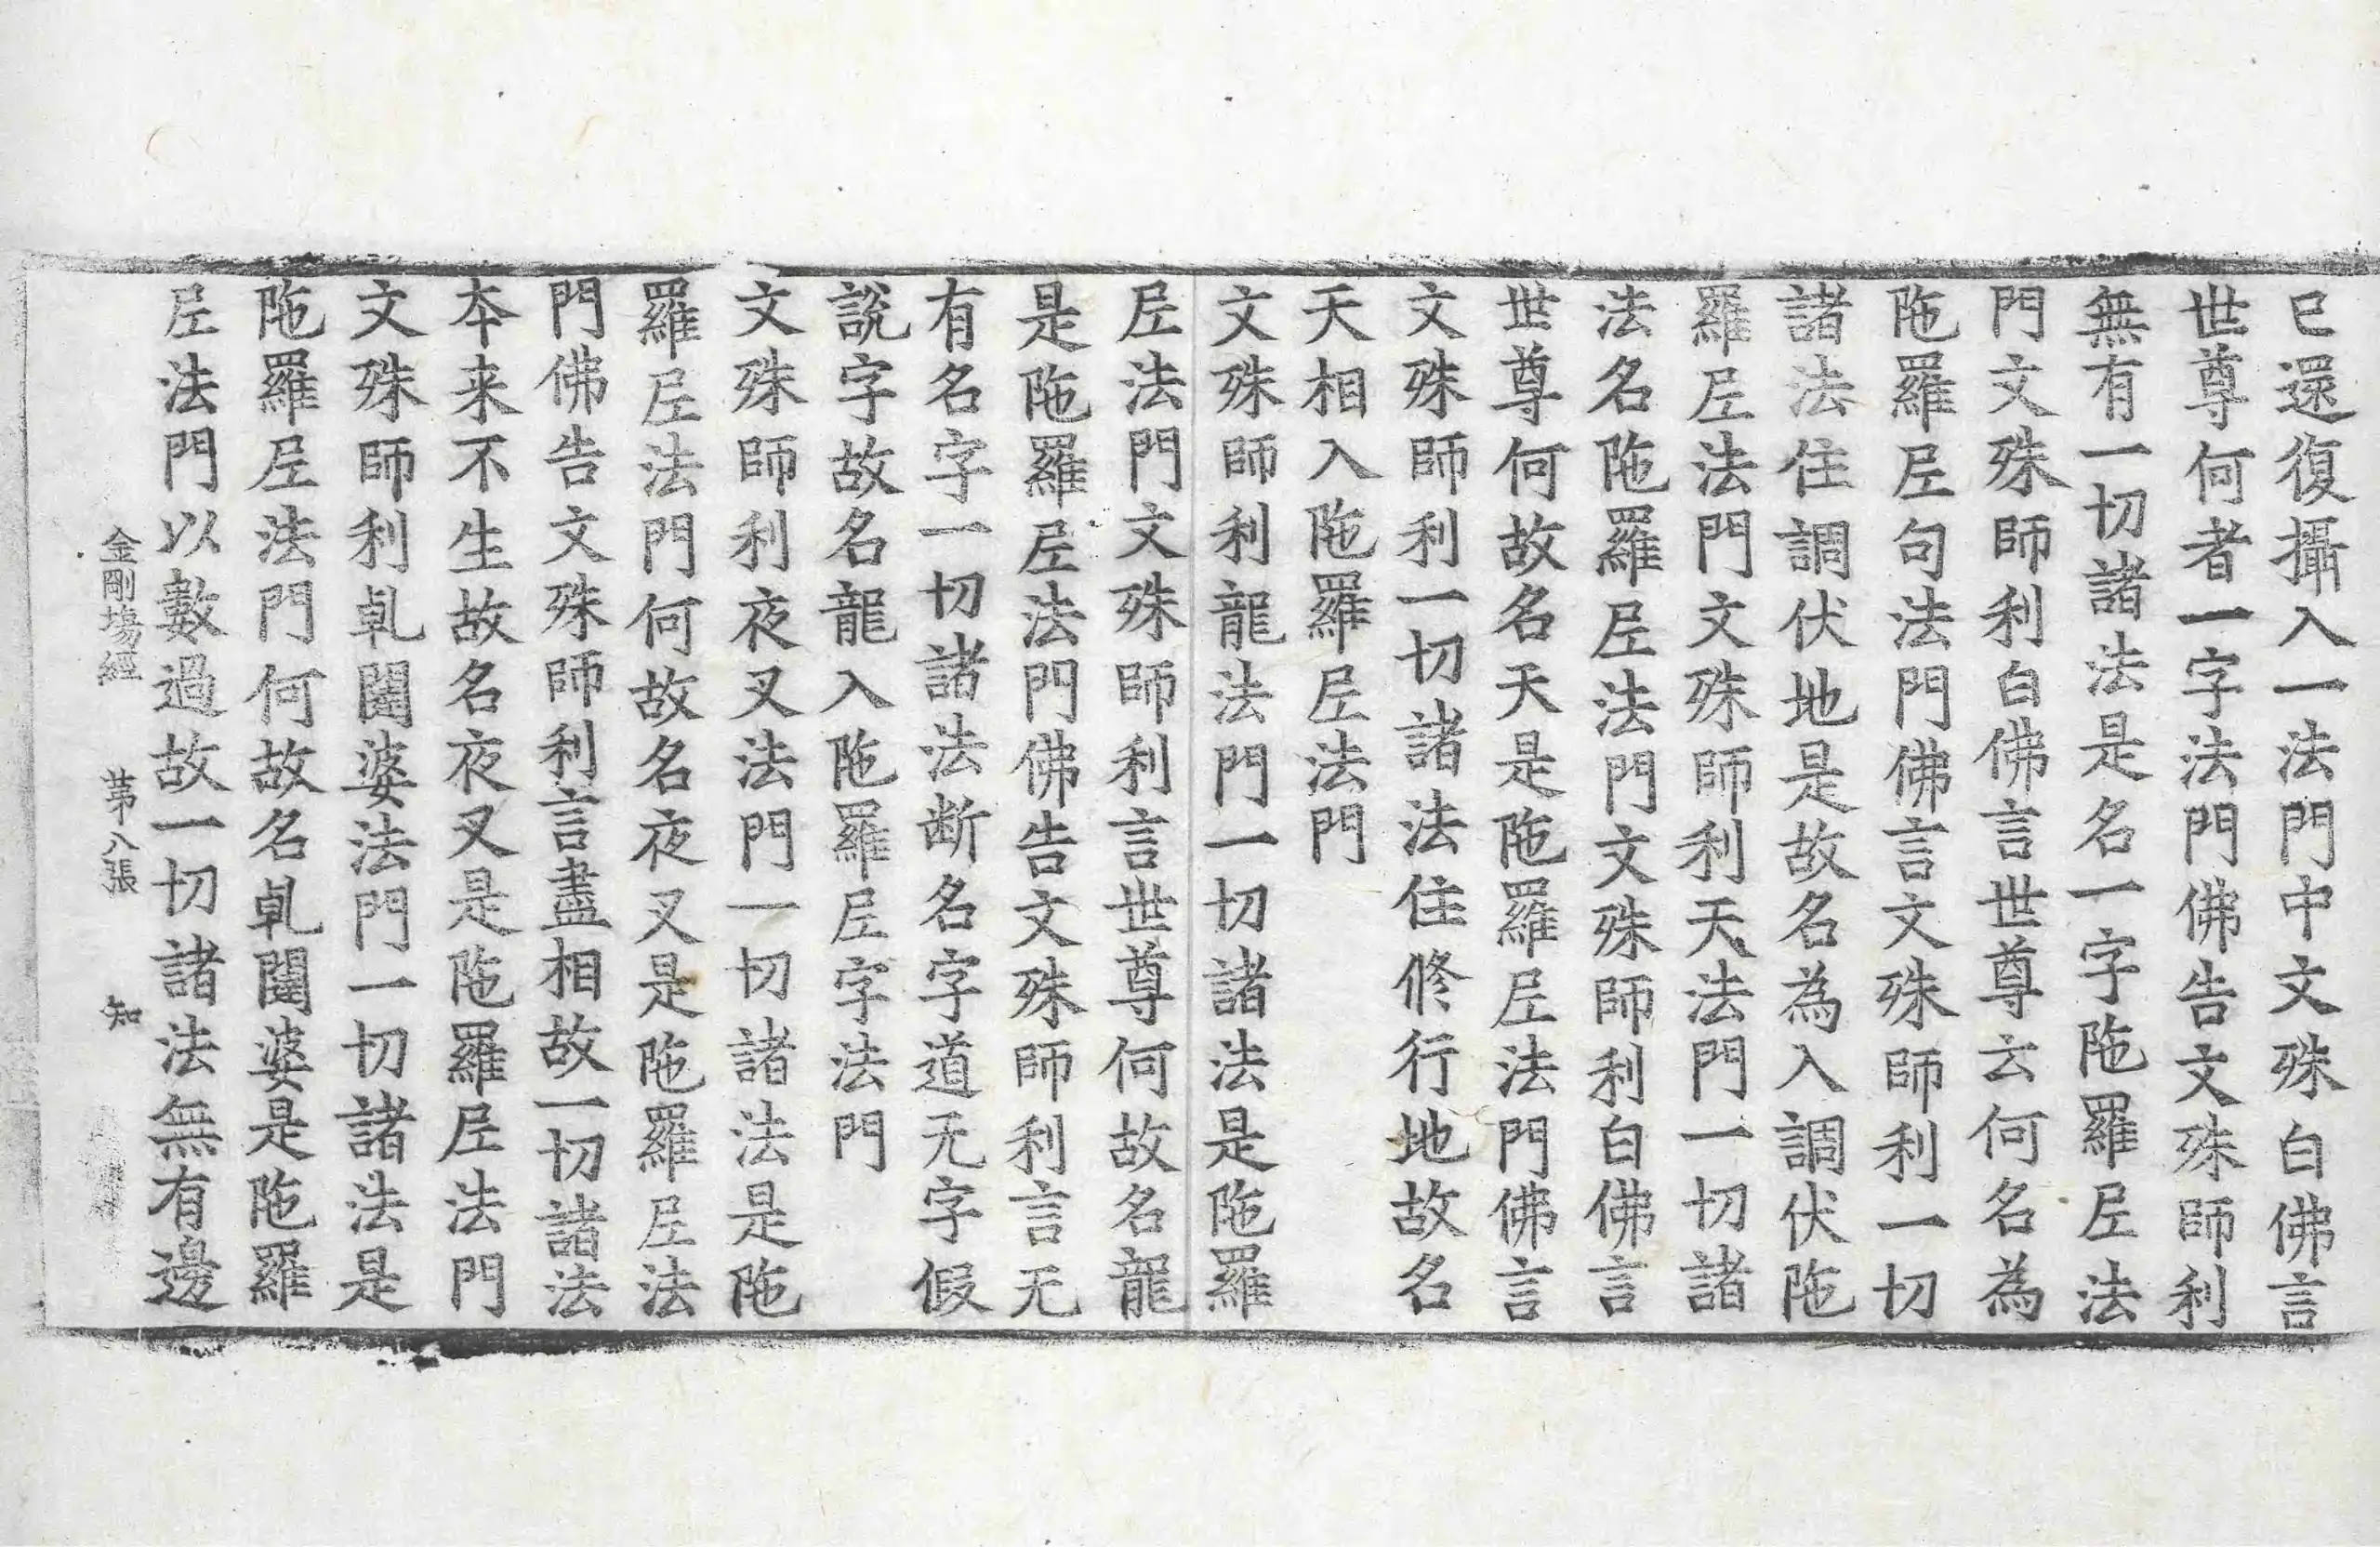 已還復攝入一法門中文殊白佛言
世尊何者一字法門佛告文殊師利
無有一切諸法是名一字陁羅𡰱法
門文殊師利白佛言世尊云何名為
陁羅𡰱句法門佛言文殊師利一切
諸法住調伏地是故名為入調伏陁
羅𡰱法門文殊師利天法門一切諸
法名陁羅𡰱法門文殊師利白佛言
世尊何故名天是陁羅𡰱法門佛言
文殊師利一切諸法住修行地故名
天相入陁羅𡰱法門
文殊師利龍法門一切諸法是陁羅
𡰱法門文殊師利言世尊何故名龍
是陁羅𡰱法門佛告文殊師利言无
有名字一切諸法断名字道无字假
說字故名龍入陁羅𡰱字法門
文殊師利夜叉法門一切諸法是陁
羅𡰱法門何故名夜叉是陁羅𡰱法
門佛告文殊師利言盡相故一切諸法
夲来不生故名夜叉是陁羅𡰱法門
文殊師利乹闥婆法門一切諸法是
陁羅𡰱法門何故名乹闥婆是陁羅
𡰱法門以數過故一切諸法無有邊
金剛場經 苐八張 知